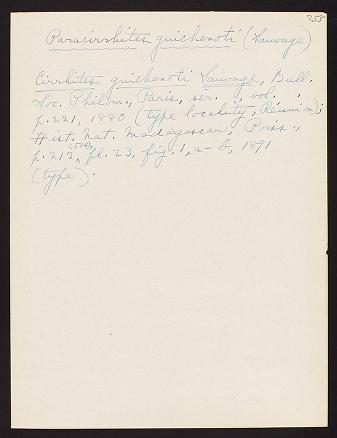 255
Paracirrhites guichenoti (Sauvage)
Cirrhites guichenoti Sauvage, Bull.
Soc. Philom., Paris, ser. , vol. ,
p. 221, 1880 (type locality, Réunion);
Hist. Nat. Madagascar, Poiss.,
p. 212, (514), pl. 23, fig. 1, a-b, 1891
(type).